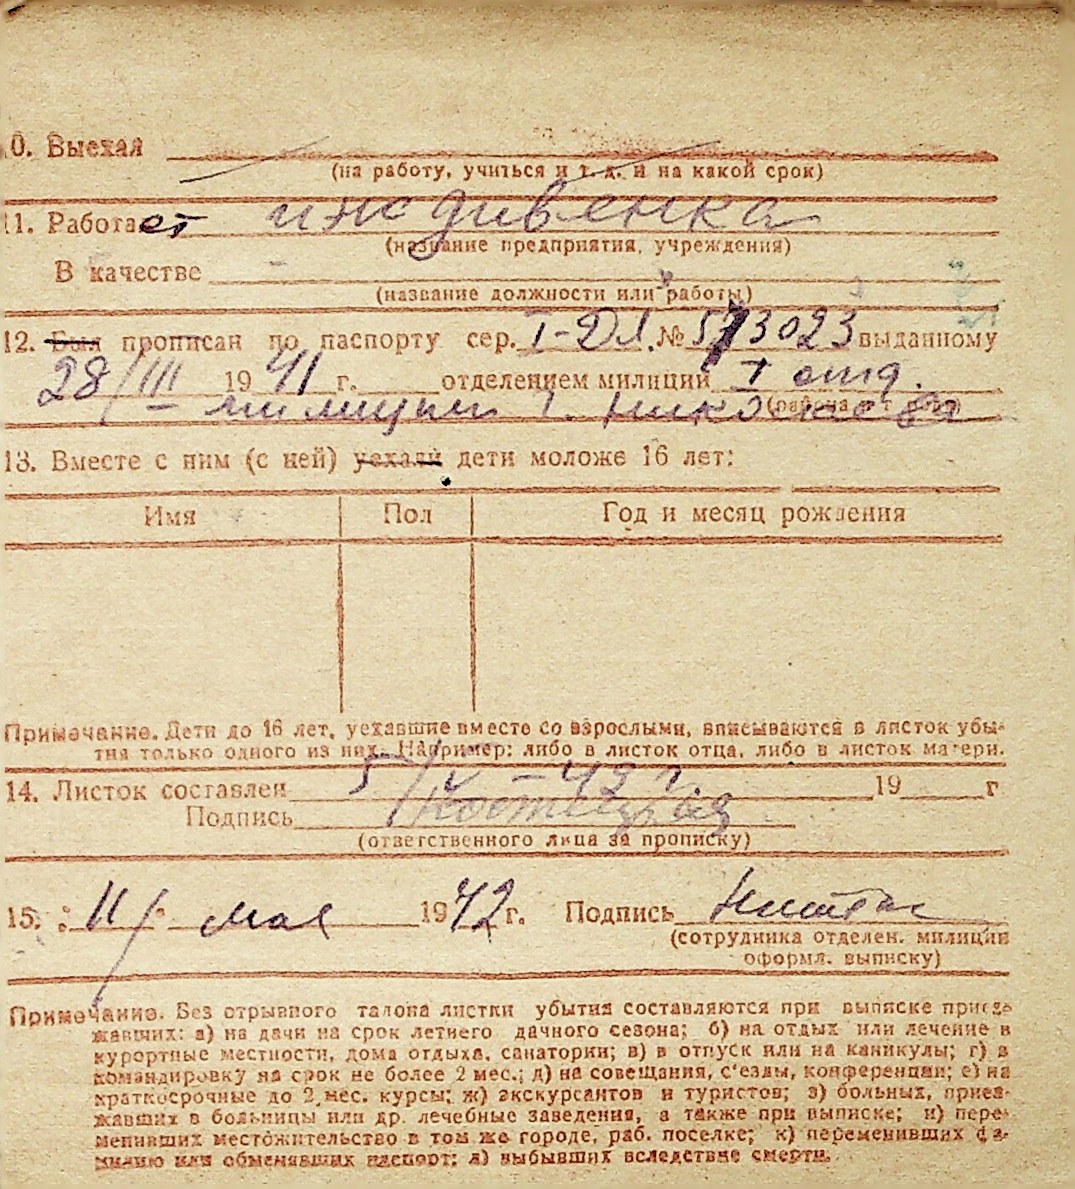 10. Выехал
(на работу, учиться и т. д. и на какой срок)
11. Работает иждивенка
(название предприятия, учреждения)
В качестве –
(название должности или работы)
12. Был прописан по паспорту сер. I-ДЛ. № 573023 выданному
28/III 1941 г. отделением милиции I отд.
милиции г. Николаева
13. Вместе с ним (с ней) уехали дети моложе 16 лет:
Имя Пол Год и месяц рождения
Примечание. Дети до 16 лет, уехавшие вместе со взрослыми, вписываются в листок убы-
тия только одного из них. Например: либо в листок отца, либо в листок матери.
14. Листок составлен 5/V-42 г. 19 г
Подпись Костецкая
(ответственного лица за прописку)
15. 11/ мая 1942 г. Подпись
(сотрудника отделен. милиции
оформл. выписку)
Примечание. Без отрывного талона листки убытия составляются при выписке приез-
жавших: а) на дачи на срок летнего дачного сезона; б) на отдых или лечение в
курортные местности, дома отдыха, санатории; в) в отпуск или на каникулы; г) в
командировку на срок не более 2 мес.; д) на совещания, с'езды, конференции; е) на
краткосрочные до 2 мес. курсы; ж) экскурсантов и туристов; з) больных, приез-
жавших в больницы или др. лечебные заведения, а также при выписке; и) пере-
менивших местожительство в том же городе, раб. поселке; к) переменивших фа-
милию или обменявших паспорт; л) выбывших вследствие смерти.